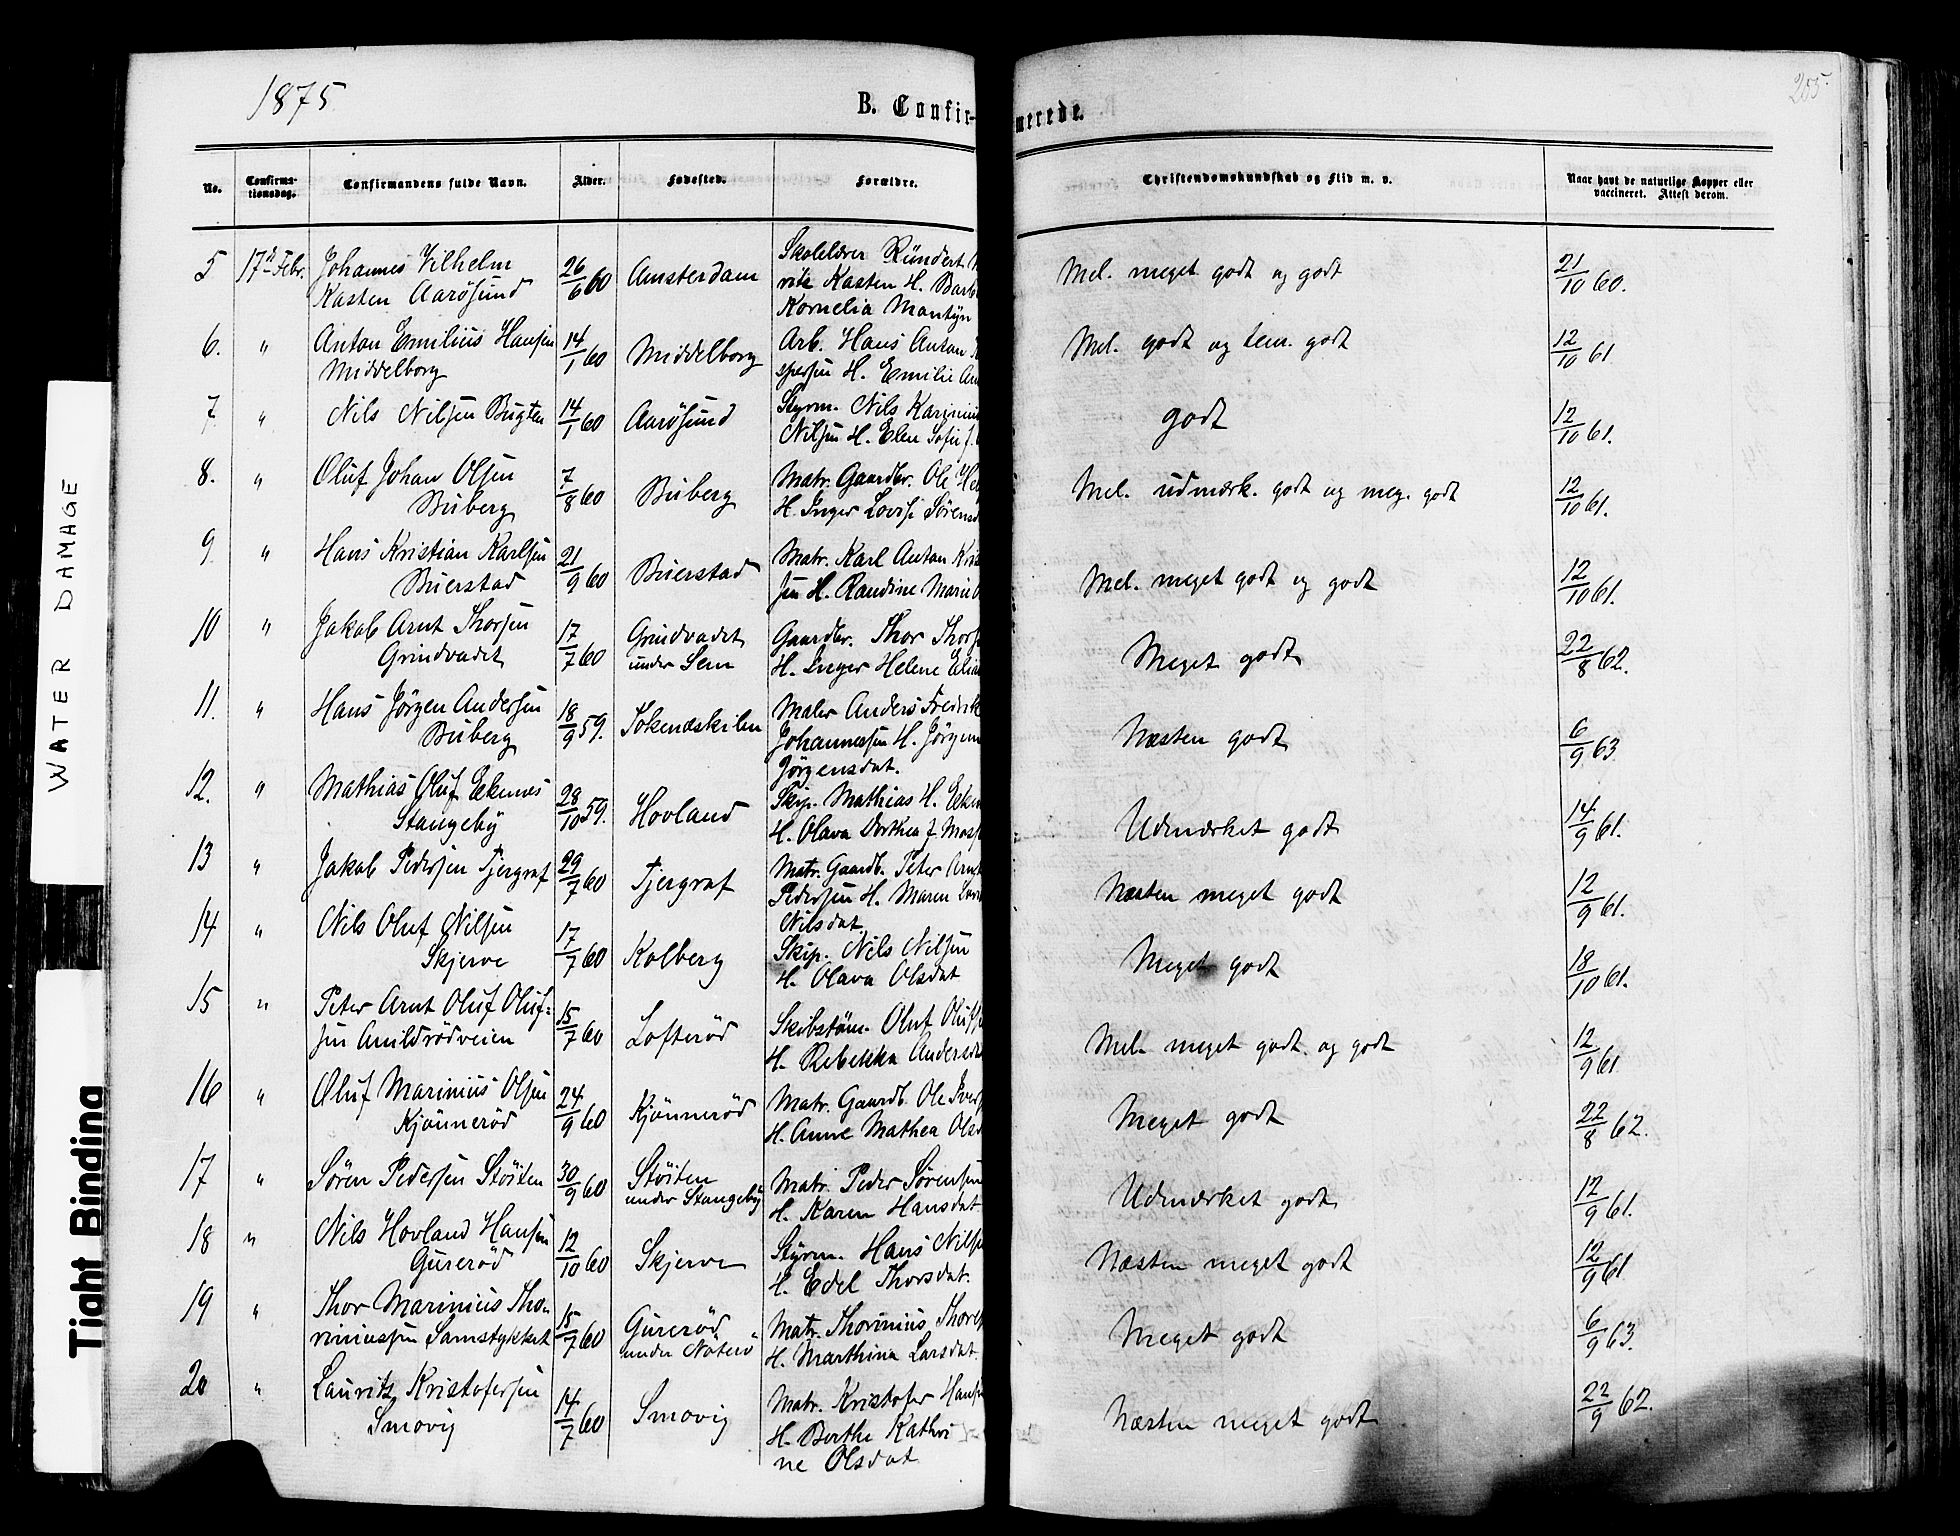 1875
B. Confir-
merede.
255
No.
Confirma-
tionsdag.
Confirmandens fulde Navn.
Alder.
Fødested.
Forældre.
Christendomskundskab og Flid m. v.
Naar havt de naturlige Kopper eller
vaccineret. Attest derom.
5 17d Febr. Johannes Vilhelm
Kasten Aarösund
26/6 60 Amsterdam
Skolelærer Ründert
Kasten H. Barb
Kornelia Montijn
Mel. meget godt og godt 21/10 60.
6. " Anton Emilius Hansen
Middelborg
14/1 60 Middelborg
Arb. Hans Anton
spersen H. Emilie An
Mel. godt og tem. godt 12/10 61
7 " Nils Nilsen Bugten 14/1 60 Aarösund
Styrm. Nils Karinius
Nilsen H. Elen Sofie J.
godt 12/10 61.
8. " Oluf Johan Olsen
Buberg
7/8 60 Buberg
Matr. Gaardbr. Ole
H. Inger Lovise Sörensd
Mel. udmærk. godt og meg. godt 12/10 61.
9. " Hans Kristian Karlsen
Buerstad
21/9 60 Buerstad
Matr. Karl Anton Kris
sen H. Randine Marie
Mel. meget godt og godt 12/10 61.
10 " Jakob Arnt Thorsen
Grindvadet
17/7 60 Grindvadet
under Sem
Gaardbr. Thor Thors
H. Inger Helene Elia
Meget godt 22/8 62.
11. " Hans Jörgen Andersen
Buberg
18/9 59. Tokenæskilen
Maler Anders Fredrik
Johannessen H. Jörgine
Jörgensdat.
Næsten godt 6/9 63
12. " Mathias Oluf Eekenes
Stangeby
28/10 59. Hovland
Skip. Mathias H. Eek
H. Olava Dorthea f.
Udmærket godt 14/9 61.
13 " Jakob Pedersen Tjergraf 29/7 60 Tjergraf
Matr. Gaardb. Peter Arnt
Pedersen H. Maren
Nilsdat
Næsten meget godt 12/9 61.
14 " Nils Oluf Nilsen
Skjerve
17/7 60 Kolberg
Skip. Nils Nilsen
H. Olava Olsdat
Meget godt 18/10 61.
15 " Peter Arnt Oluf Oluf-
sen Amildrödveien
15/7 60 Lofteröd
Skibstöm. Oluf Olufse
H. Rebekka Andersda
Mel. meget godt og godt 12/9 61
16 " Oluf Marinius Olsen
Kjönneröd
24/9 60 Kjönneröd
Matr. Gaardb. Ole Ivers
H. Anne Mathea Olsd
Meget godt 22/8 62.
17 " Sören Pedersen Stöiten 30/9 60 Stöiten
under Stangeby
Matr. Peder Sörensen
H. Karen Hansdat
Udmærket godt 12/9 61.
18 " Nils Hovland Hansen
Gureröd
12/10 60 Skjerve
Styrm. Hans Nilse
H. Edel Thorsdat.
Næsten meget godt 12/9 61
19 " Thor Marinius Tho-
riniussen Samstykket
15/7 60 Gureröd
under Nöterö
Matr. Thorinius Thores
H. Marthina Larsdat.
Meget godt 6/9 63.
20 " Laurits Kristofersen
Smovig
14/7 60 Smovig
Matr. Kristofer Hanse
H. Berthe Kathri
ne Olsdat
Næsten meget godt 22/9 62.
WATER DAMAGE
Tight Binding